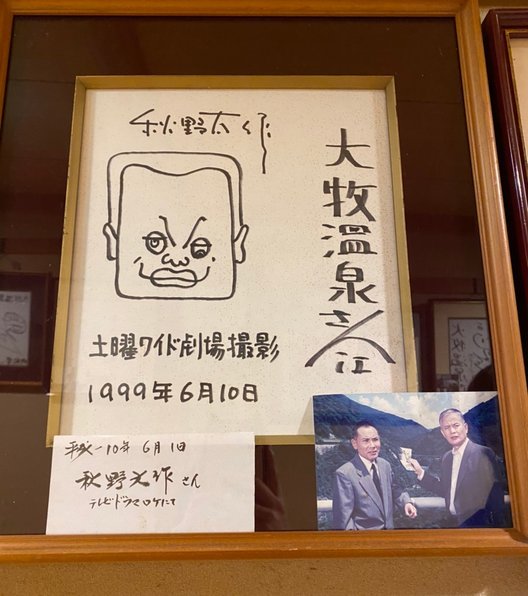 秋野太作
大牧温泉さん江
土曜ワイド劇場撮影
1999年6月10日
平成一10年6月1日
秋野太作さん
テレビドラマロケにて